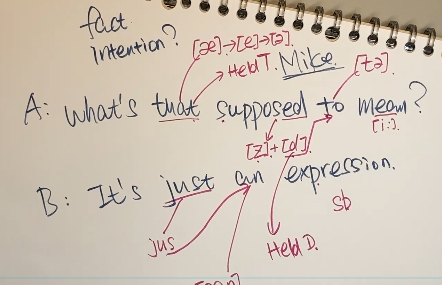 fact
intention?
[æ]→[e]→[ə].
Held T. Mike.
[tə].
A: What's that supposed to mean?
[i:].
[z]+[d].
B: It's just an expression.
sb
jus
Held D.